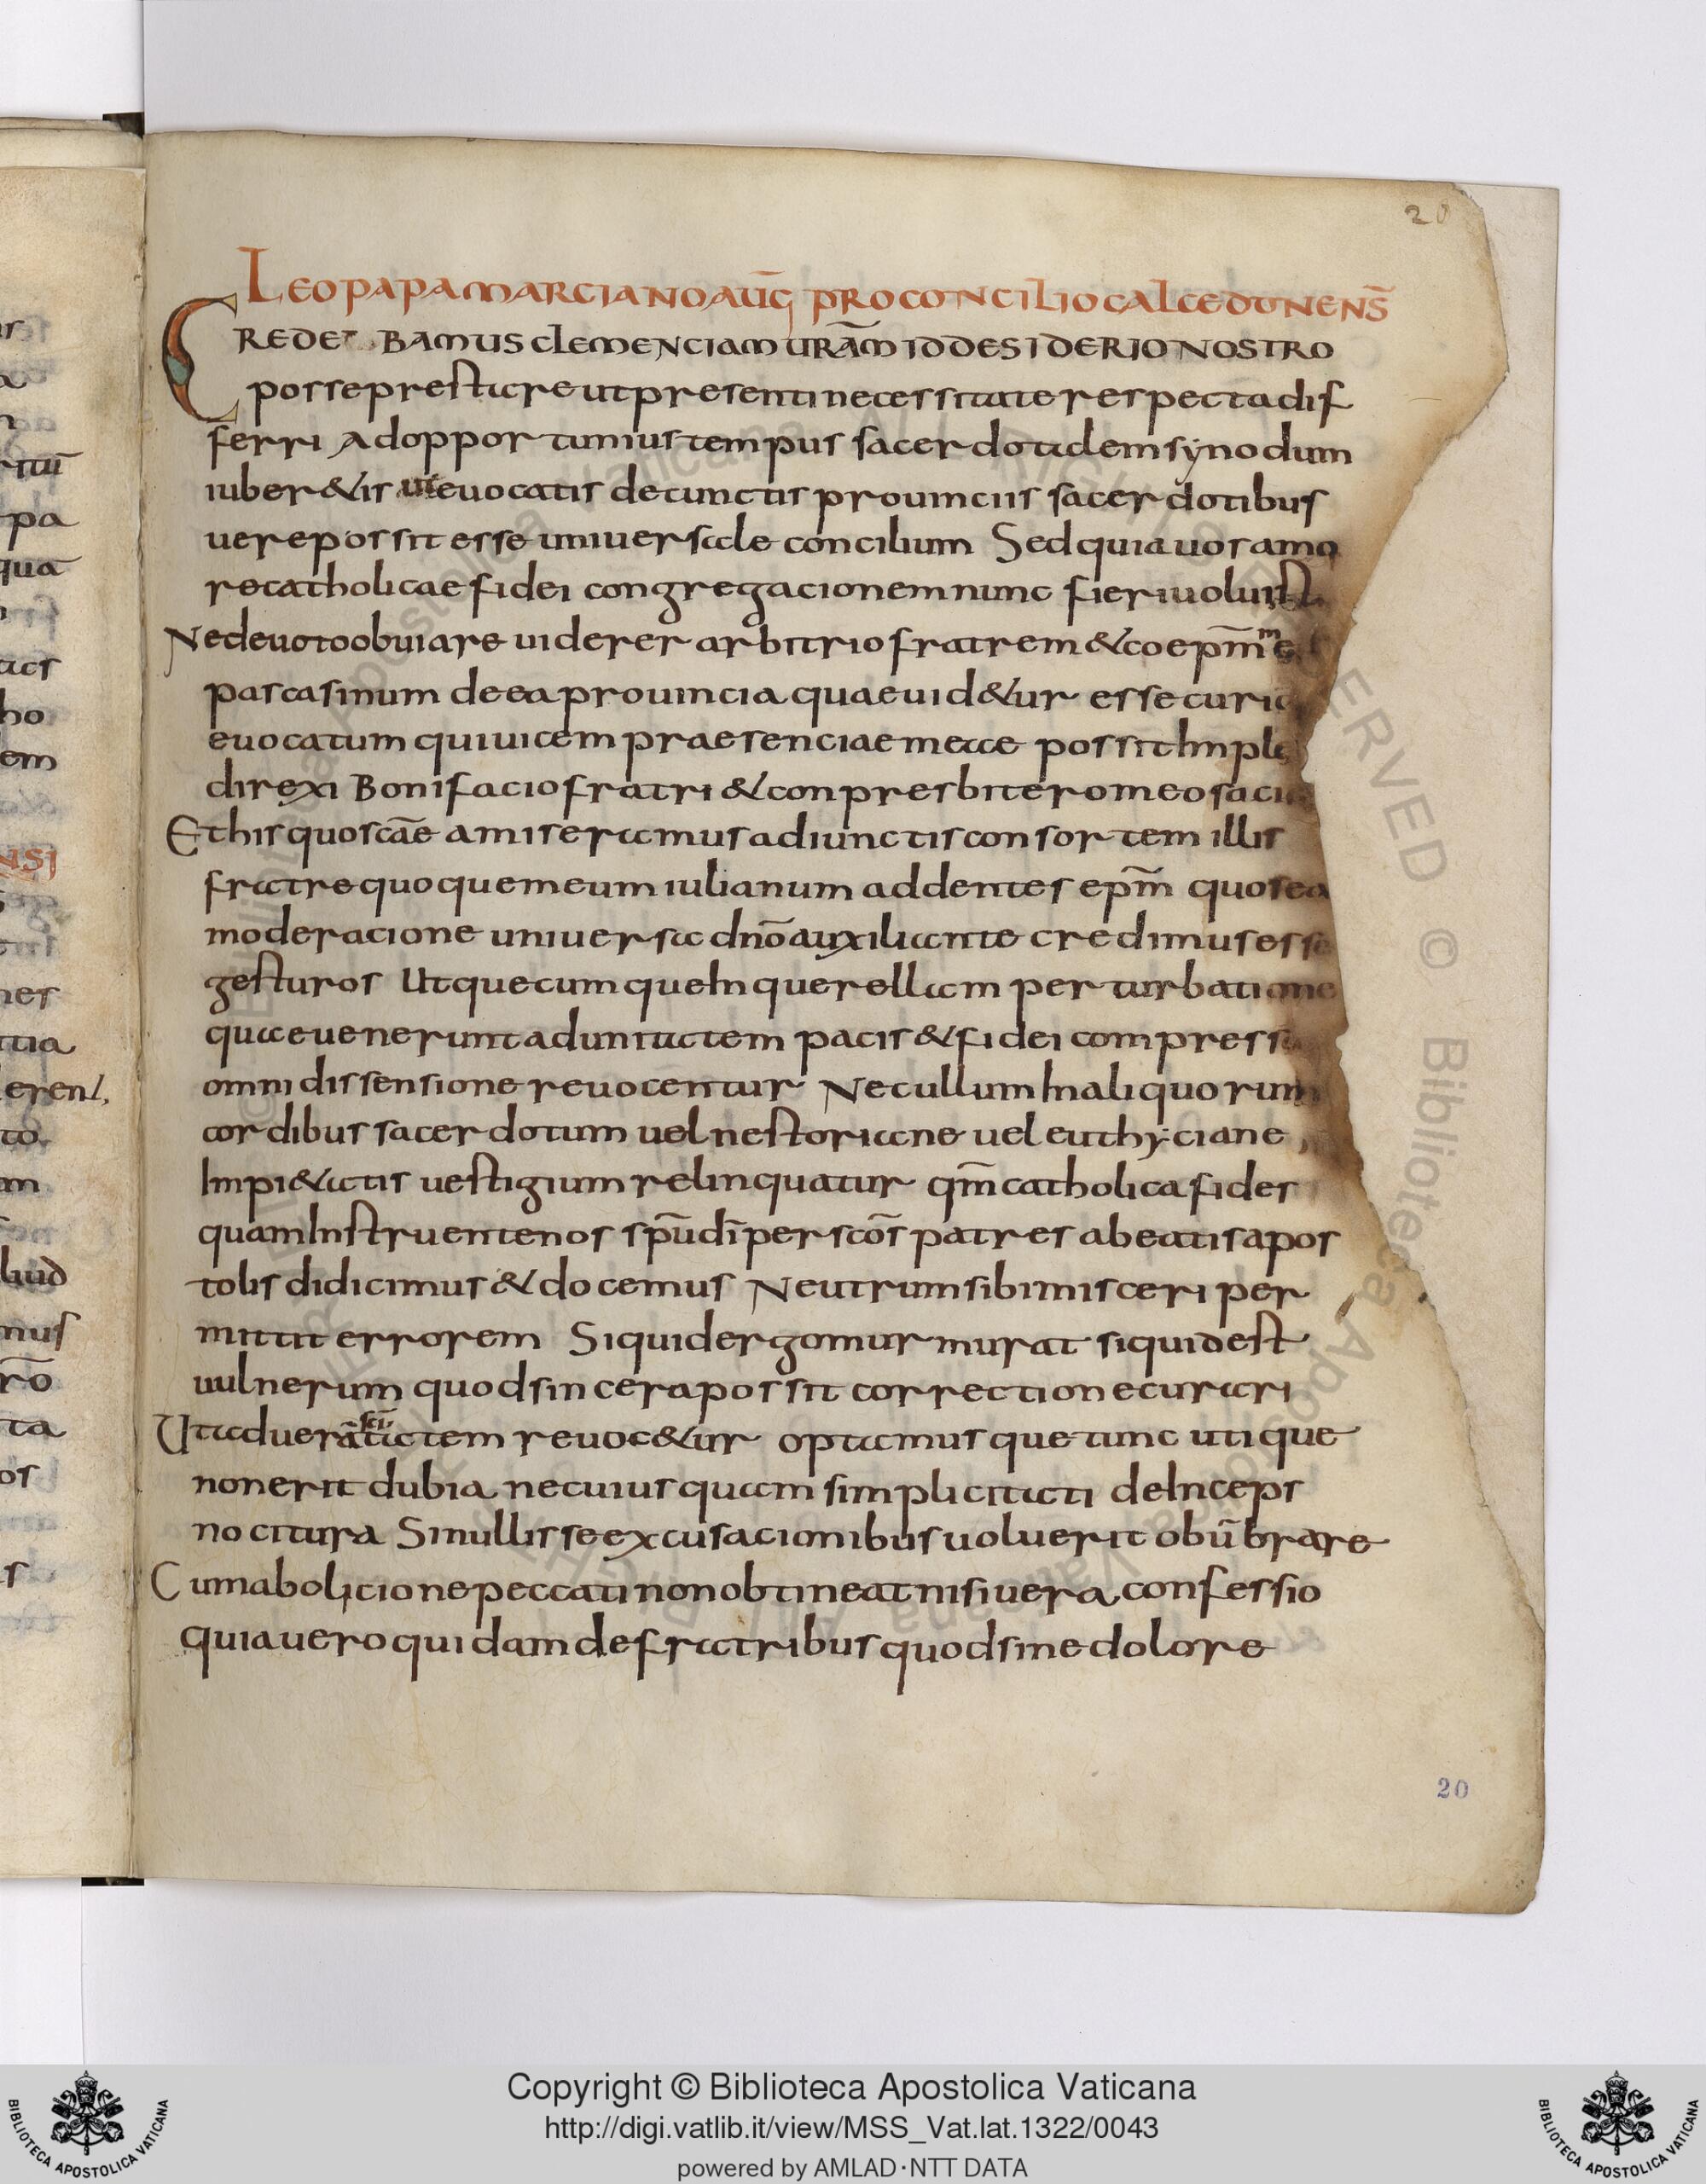 20
LEO PAPA MARCIANO AUG̅ PRO CONCILIO CALCEDONENS̅
CREDEBAMUS CLEMENCIAM URA̅M ID DESIDERIO NOSTRO
posse prestare ut presenti necessitate respecta dif
ferri Ad opportunius tempus sacerdotalem synodum
iuber&is ut euocatis de cunctis prouinciis sacerdotibus
uere possit esse uniuersale concilium Sed quia uos amo
re catholicae fidei congregacionem nunc fieri uoluisti
Ne deuoto obuiare uiderer arbitrio fratrem & coepm̅
pascasinum de ea prouincia quae uid&ur esse
euocatum qui uicem praesenciae meae possit
direxi Bonifacio fratri & conpresbitero meo
Et his quos ca̅e a miseramus adiunctis consortem illis
fratre quoque meum iulianum addentes epm̅ quos ea
moderacione uniuersa dno̅ auxiliante credimus esse
gesturos Ut quecumque In querellam perturbatione
quae uenerunt ad unitatem pacis & fidei
omni dissensione reuocentur Nec ullum In aliquorum
cordibus sacerdotum uel nestoriane uel euthyciane
Impi&atis uestigium relinquatur qm̅ catholica fides
quam Instruente nos spu̅ di̅ per sco̅s patres a beatis apos
tolis didicimus & docemus Neutrum sibi misceri per
mittit errorem Si quid ergo murmurat si quid est
uulnerum quod sincera possit correctione curari
Ut ad ueram sci̅ tatem reuoc&ur optamus que tunc utique
non erit dubia nec uiusquam simplicitati deInceps
nocitura Si nullis se excusacionibus uoluerit obu̅brare
Cum abolicione peccati non obtineat nisi uera confessio
quia uero quidam de fratribus quod sine dolore
20
Copyright © Biblioteca Apostolica Vaticana
http://digi.vatlib.it/view/MSS_Vat.lat.1322/0043
powered by AMLAD·NTT DATA
BIBLIOTECA APOSTOLICA VATICANA
BIBLIOTECA APOSTOLICA VATICANA